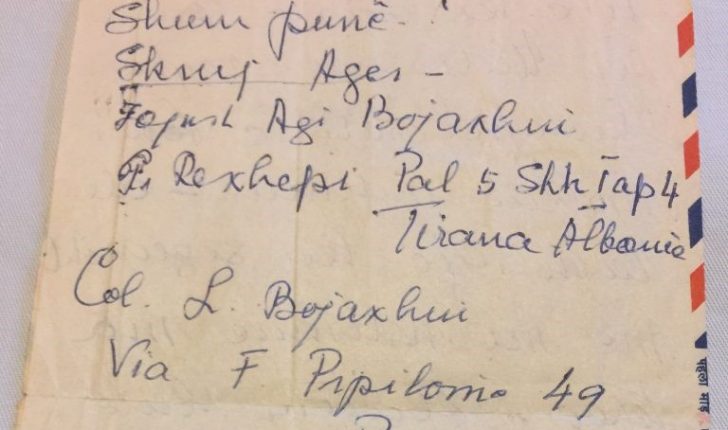 Shum punë.
Skruj Ages –
Agi Bojaxhui
Rexhepi Pal 5 Shk I ap 4
Tirana Albania
Col. L. Bojaxhui
Via F Pipilomo 49
पहला मोड़